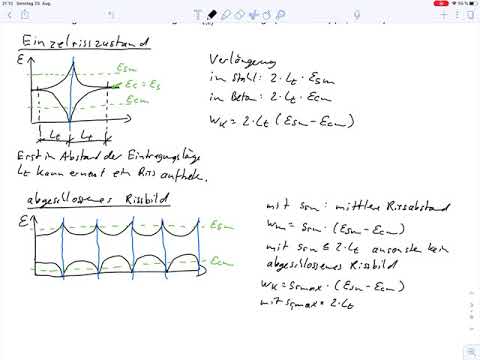 21:13 Sonntag 23. Aug.
96 %
Einzelrisszustand
ε
εsm
εc = εs
εcm
Lt
Lt
Erst in Abstand der Eintragungslänge
Lt kann erneut ein Riss auftreten.
Verlängerung
in Stahl: 2·Lt·εsm
in Beton: 2·Lt·εcm
wk = 2·Lt (εsm-εcm)
abgeschlossenes Rissbild
ε
εsm
εcm
mit srm: mittlere Rissabstand
wm = srm·(εsm-εcm)
mit srm ≤ 2·Lt ansonsten kein
abgeschlossenes Rissbild
wk = srmax·(εsm-εcm)
mit srmax = 2·Lt